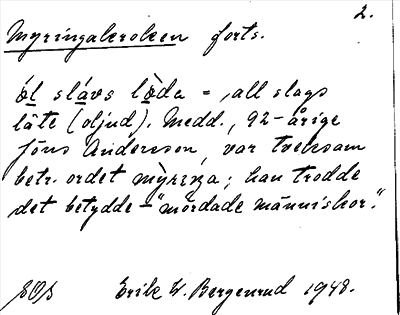 2.
Myringakroken forts.
ȯl slavs lȯda = „all slags
läte (oljud). Medd., 92-årige
Jöns Andersson, var tveksam
betr. ordet mỳriŋa; han trodde
det betydde – "mördade människor."
Erik W. Bergenrud 1948.